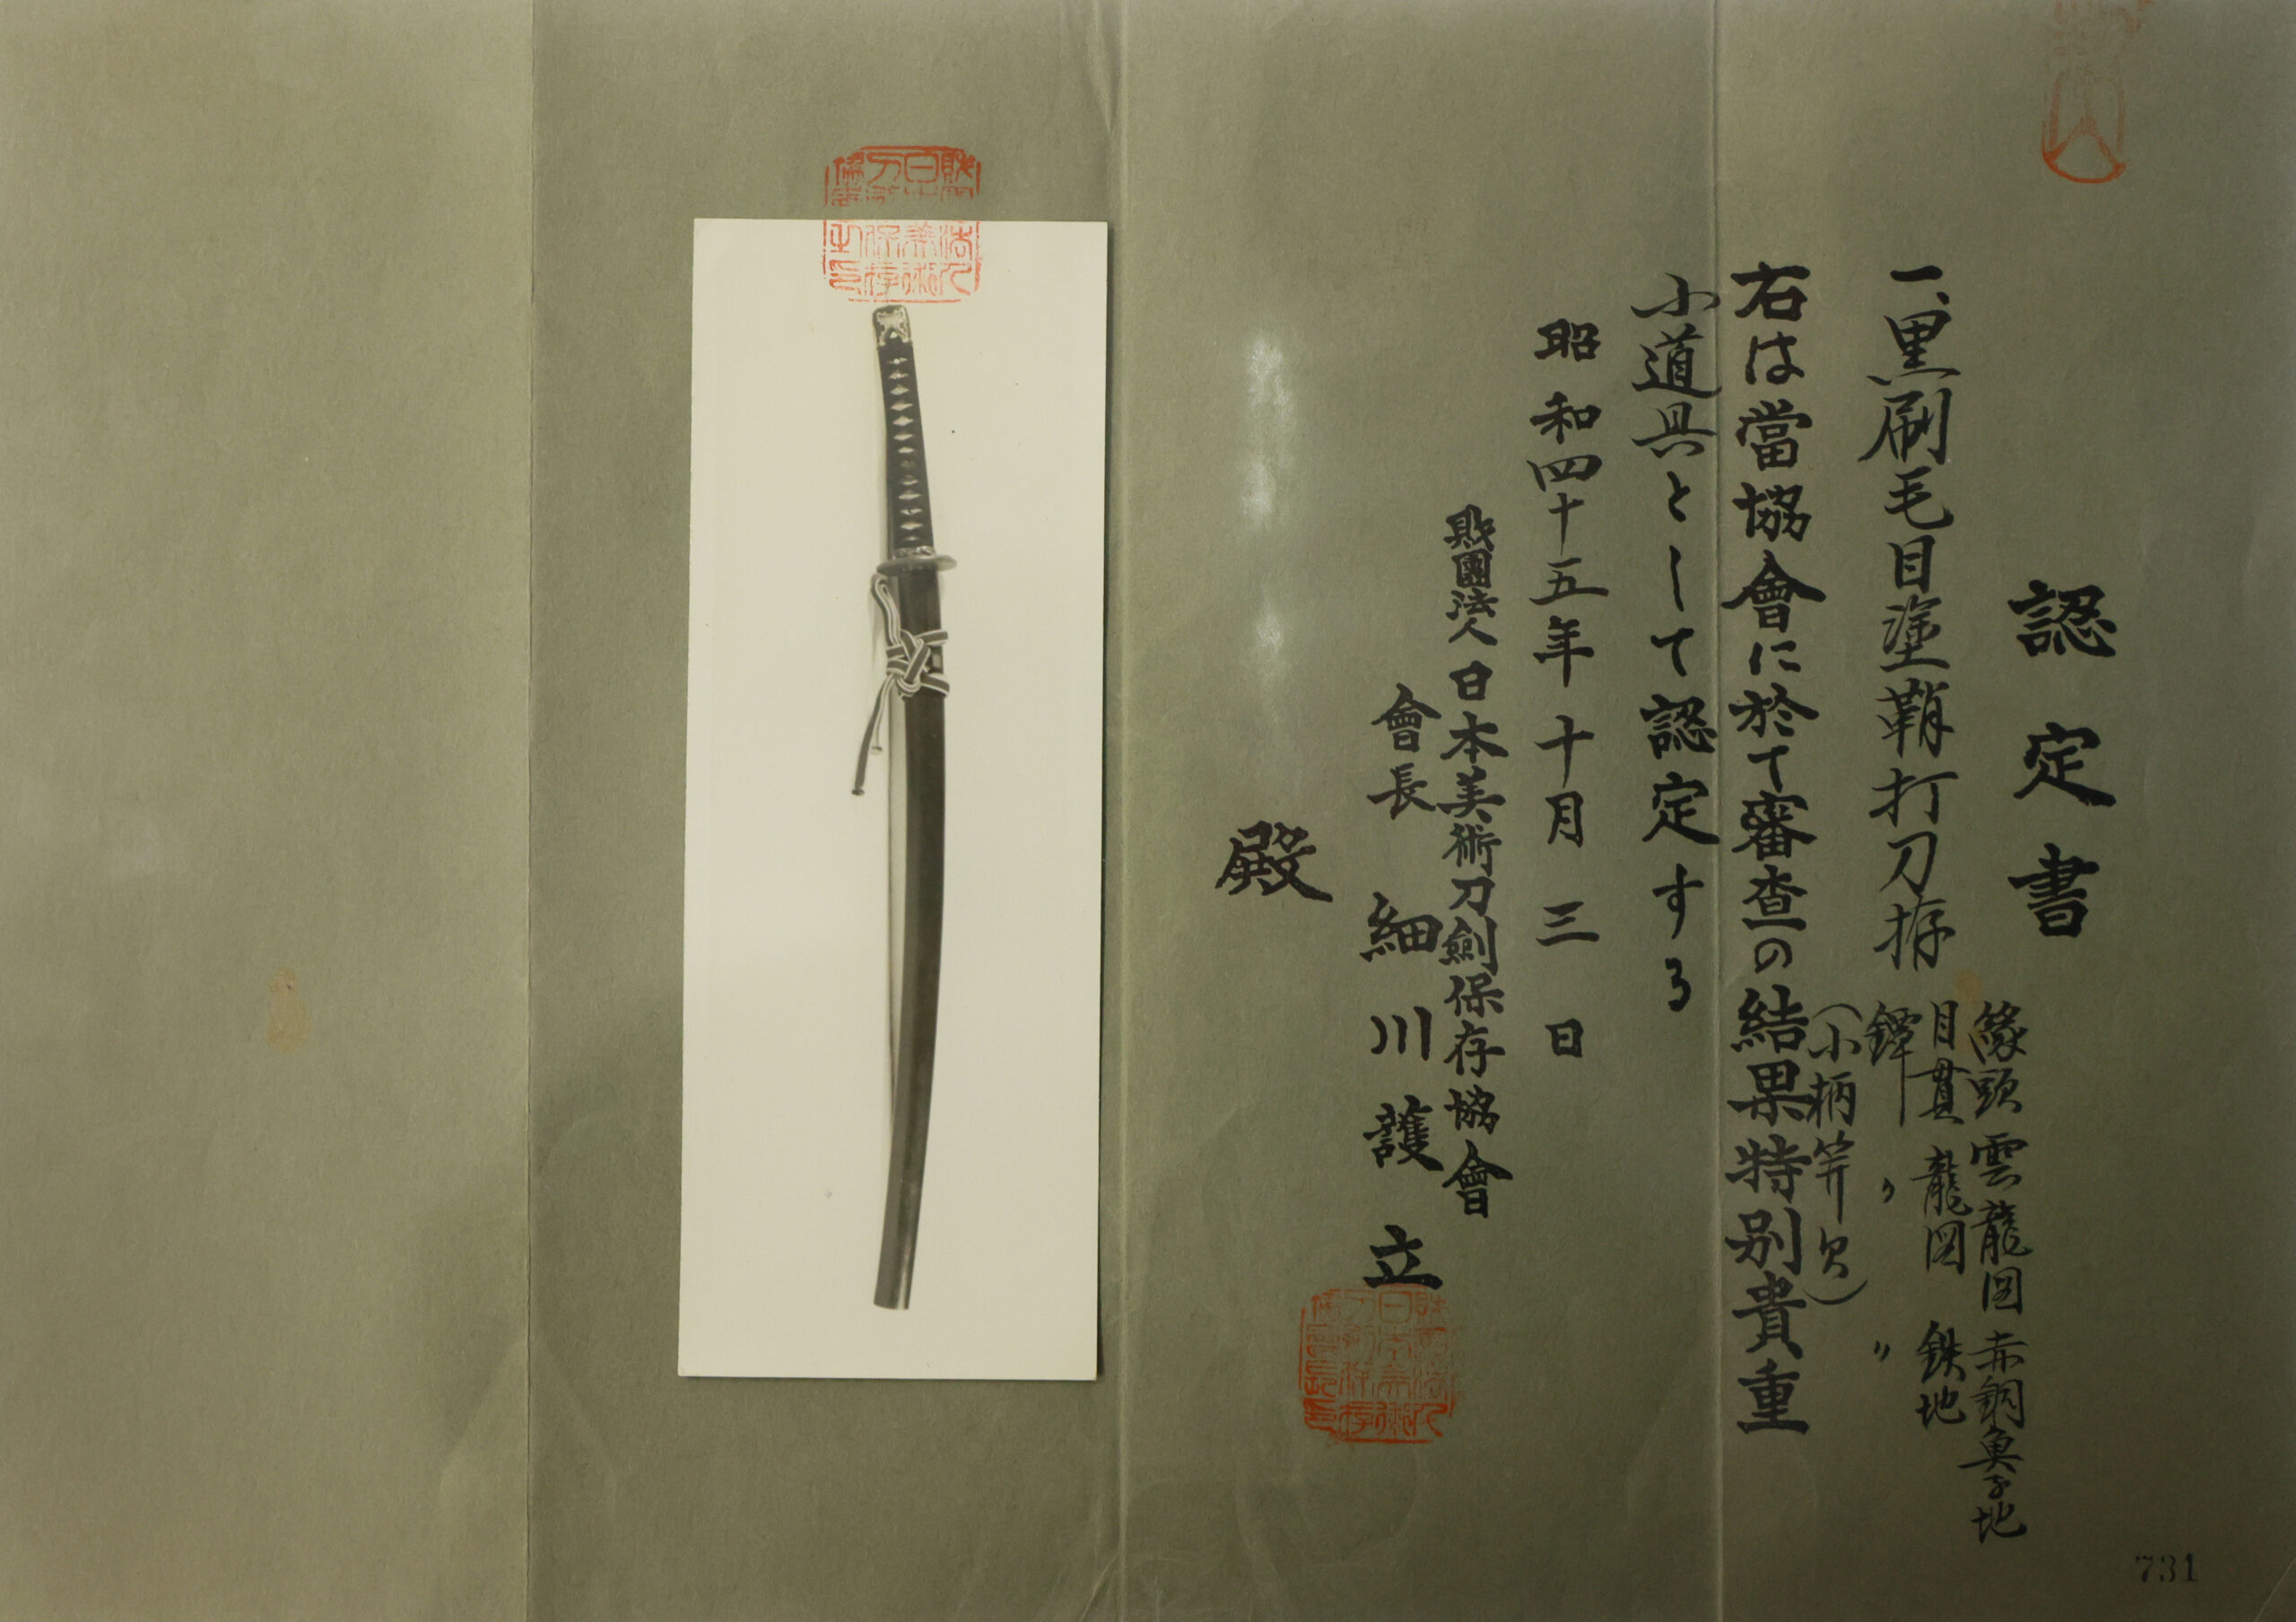 認定書
一、黒刷毛目塗鞘打刀拵
縁頭 雲龍図 赤銅魚子地
目貫 龍図 鉄地
鐔 〃 〃
(小柄笄欠)
右は當協會に於て審査の結果特別貴重
小道具として認定する
昭和四十五年十月三日
財團法人日本美術刀劍保存協會
會長 細川護立
殿
731